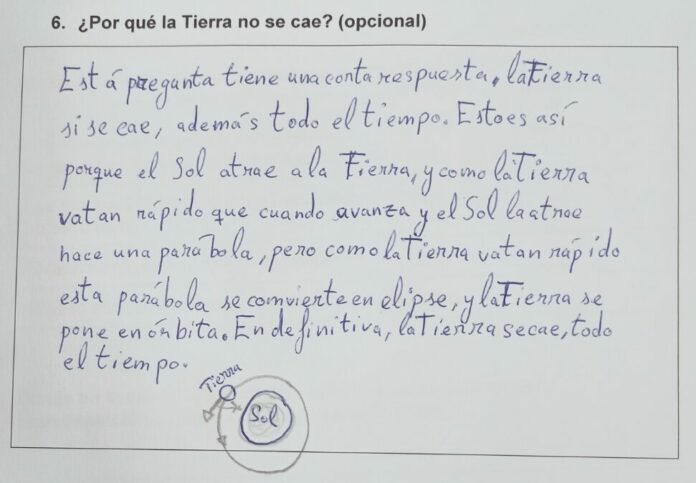 6. ¿Por qué la Tierra no se cae? (opcional)
Está pregunta tiene una corta respuesta, la Tierra
si se cae, además todo el tiempo. Esto es así
porque el Sol atrae a la Tierra, y como la Tierra
va tan rápido que cuando avanza y el Sol la atrae
hace una parábola, pero como la Tierra va tan rápido
esta parábola se comvierte en elipse, y la Tierra se
pone en órbita. En definitiva, la Tierra se cae, todo
el tiempo.
Tierra
Sol